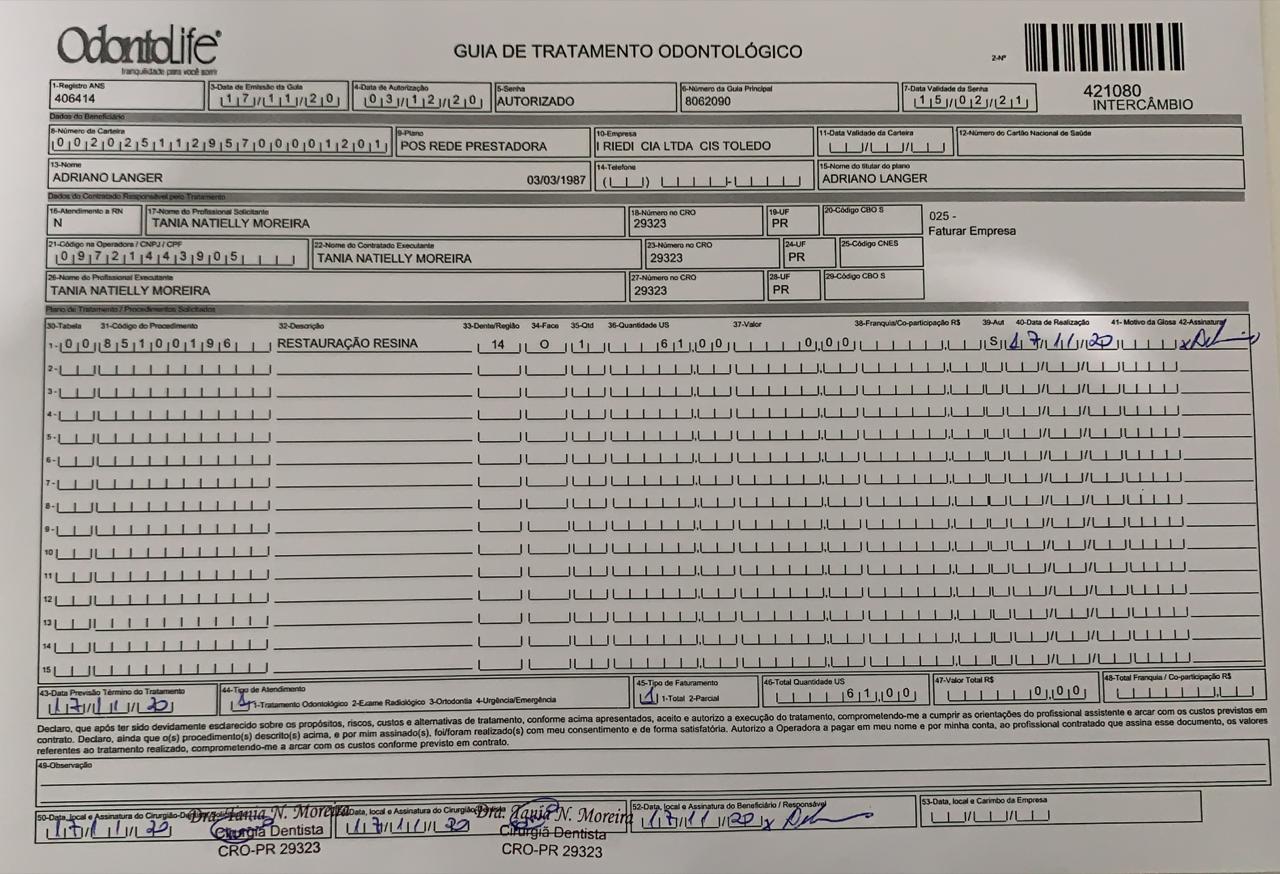 OdontoLife®
tranquilidade para você sorrir
GUIA DE TRATAMENTO ODONTOLÓGICO
2-Nº
421080
INTERCÂMBIO
1-Registro ANS
406414
3-Data de Emissão da Guia
17/11/20
4-Data de Autorização
03/12/20
5-Senha
AUTORIZADO
6-Número da Guia Principal
8062090
7-Data Validade da Senha
15/02/21
Dados do Beneficiário
8-Número da Carteira
00202511295700001201
9-Plano
POS REDE PRESTADORA
10-Empresa
I RIEDI CIA LTDA CIS TOLEDO
11-Data Validade da Carteira
12-Número do Cartão Nacional de Saúde
13-Nome
ADRIANO LANGER 03/03/1987
14-Telefone
15-Nome do titular do plano
ADRIANO LANGER
Dados do Contratado Responsável pelo Tratamento
16-Atendimento a RN
N
17-Nome do Profissional Solicitante
TANIA NATIELLY MOREIRA
18-Número no CRO
29323
19-UF
PR
20-Código CBO S
025 -
Faturar Empresa
21-Código na Operadora / CNPJ / CPF
09721443905
22-Nome do Contratado Executante
TANIA NATIELLY MOREIRA
23-Número no CRO
29323
24-UF
PR
25-Código CNES
26-Nome do Profissional Executante
TANIA NATIELLY MOREIRA
27-Número no CRO
29323
28-UF
PR
29-Código CBO S
Plano de Tratamento / Procedimentos Solicitados
30-Tabela 31-Código do Procedimento 32-Descrição 33-Dente/Região 34-Face 35-Qtd 36-Quantidade US 37-Valor 38-Franquia/Co-participação R$ 39-Aut 40-Data de Realização 41- Motivo da Glosa 42-Assinatura
1- 00 85100196 RESTAURAÇÃO RESINA 14 O 1 61,00 0,00 S 17/11/20 x
2-
3-
4-
5-
6-
7-
8-
9-
10
11
12
13
14
15
43-Data Previsão Término do Tratamento
17/11/20
44-Tipo de Atendimento
1 1-Tratamento Odontológico 2-Exame Radiológico 3-Ortodontia 4-Urgência/Emergência
45-Tipo de Faturamento
1 1-Total 2-Parcial
46-Total Quantidade US
61,00
47-Valor Total R$
0,00
48-Total Franquia / Co-participação R$
Declaro, que após ter sido devidamente esclarecido sobre os propósitos, riscos, custos e alternativas de tratamento, conforme acima apresentados, aceito e autorizo a execução do tratamento, comprometendo-me a cumprir as orientações do profissional assistente e arcar com os custos previstos em
contrato. Declaro, ainda que o(s) procedimento(s) descrito(s) acima, e por mim assinado(s), foi/foram realizado(s) com meu consentimento e de forma satisfatória. Autorizo a Operadora a pagar em meu nome e por minha conta, ao profissional contratado que assina esse documento, os valores
referentes ao tratamento realizado, comprometendo-me a arcar com os custos conforme previsto em contrato.
49-Observação
50-Data, local e Assinatura do Cirurgião-Dentista
17/11/20
Dra. Tania N. Moreira
Cirurgiã Dentista
CRO-PR 29323
Data, local e Assinatura do Cirurgião-Dentista
17/11/20
Dra. Tania N. Moreira
Cirurgiã Dentista
CRO-PR 29323
52-Data, local e Assinatura do Beneficiário / Responsável
17/11/20 x
53-Data, local e Carimbo da Empresa